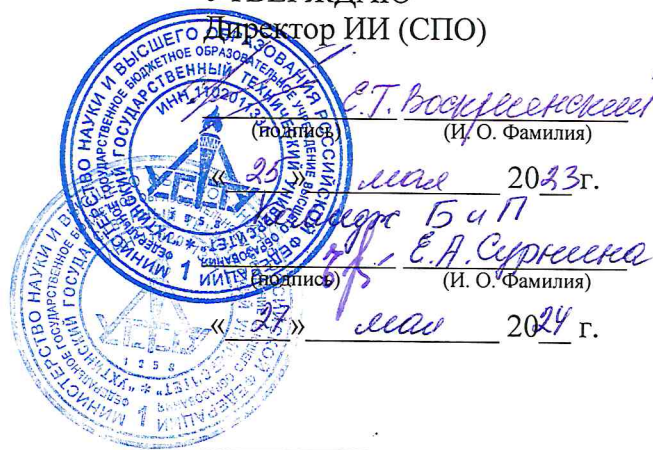 УТВЕРЖДАЮ
Директор ИИ (СПО)
Е.Т. Воскресенский
(подпись) (И. О. Фамилия)
« 25 » мая 2023г.
БиП
Е.А.
(подпись) (И. О. Фамилия)
« 27 » мая 2024 г.
МИНИСТЕРСТВО НАУКИ И ВЫСШЕГО ОБРАЗОВАНИЯ РОССИЙСКОЙ ФЕДЕРАЦИИ
ФЕДЕРАЛЬНОЕ ГОСУДАРСТВЕННОЕ БЮДЖЕТНОЕ ОБРАЗОВАТЕЛЬНОЕ УЧРЕЖДЕНИЕ ВЫСШЕГО ОБРАЗОВАНИЯ
"УХТИНСКИЙ ГОСУДАРСТВЕННЫЙ ТЕХНИЧЕСКИЙ УНИВЕРСИТЕТ"
УГТУ
1958
1